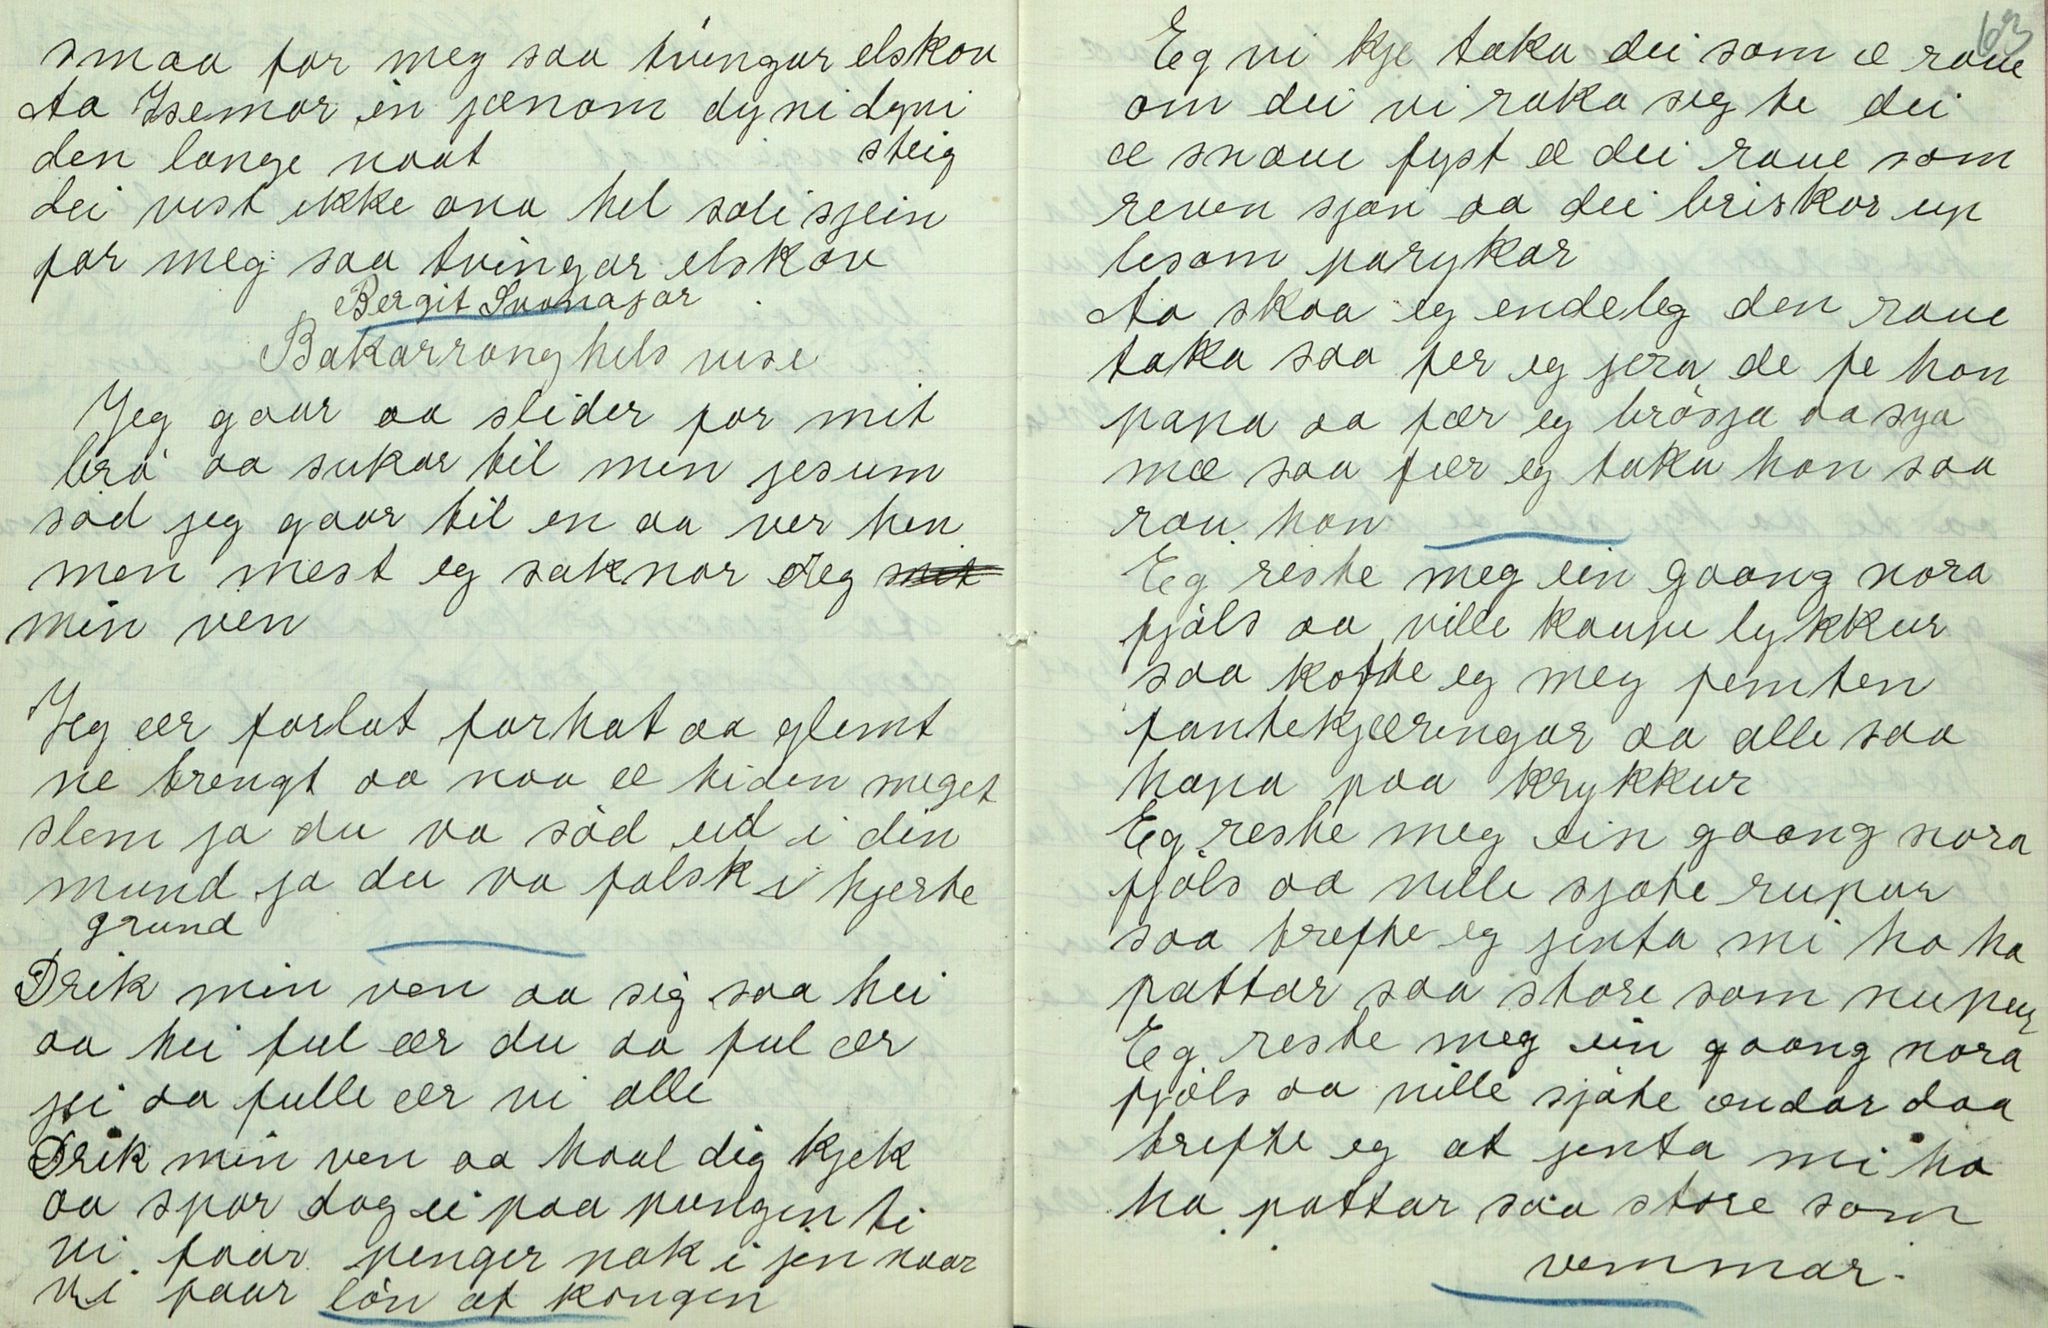 smaa for meg saa tvingar elskov
Aa Isemar in jænom dyni dyni
den lange naat steig
dei vist ikke ana hel soli sjein
for meg saa tvingar elskov
Bergit Svonajar
Bakarranghels vise
Jeg gaar aa slider for mit
brø aa sukar til men jesum
sød jeg gaar til en aa ver hen
men mest eg saknar dreg
min ven
Jeg ær forlat forhat aa glemt
ne trengt aa naa æ tiden meget
slem ja du va sød ud i din
mund ja du va falsk i hjerte
grund
Drik min ven aa sig saa hei
aa hei ful ær du aa ful ær
jei aa fulle ær vi alle
Drik min ven aa haal dig kjek
aa spar dog ei paa pungen ti
vi faar penger nok i jen naar
vi faar løn af kongen
63
Eg vi kje taka dei som æ raue
om dei vi raka seg te dei
æ snaue fyst æ dei raue som
reven sjøn aa dei briskar up
lesom parykar
Aa skaa eg endeleg den raue
taka saa fer eg jera de fe han
papa aa fær eg brøsja aa sya
mæ saa fær eg taka han saa
rau han
Eg reste meg ein goang nora
fjøls aa ville kaupe lykkur
saa kofte eg meg femten
fantekjæringar aa alle saa
hapa paa krykkur
Eg reste meg ein goang nora
fjøls aa ville sjøte rupur
saa trefte eg jenta mi ho ha
pattar saa store som nupur
Eg reste meg ein goang nora
fjøls aa ville sjøte ændar daa
trefte eg at jenta mi ho
ha pattar saa store som
vemmar.